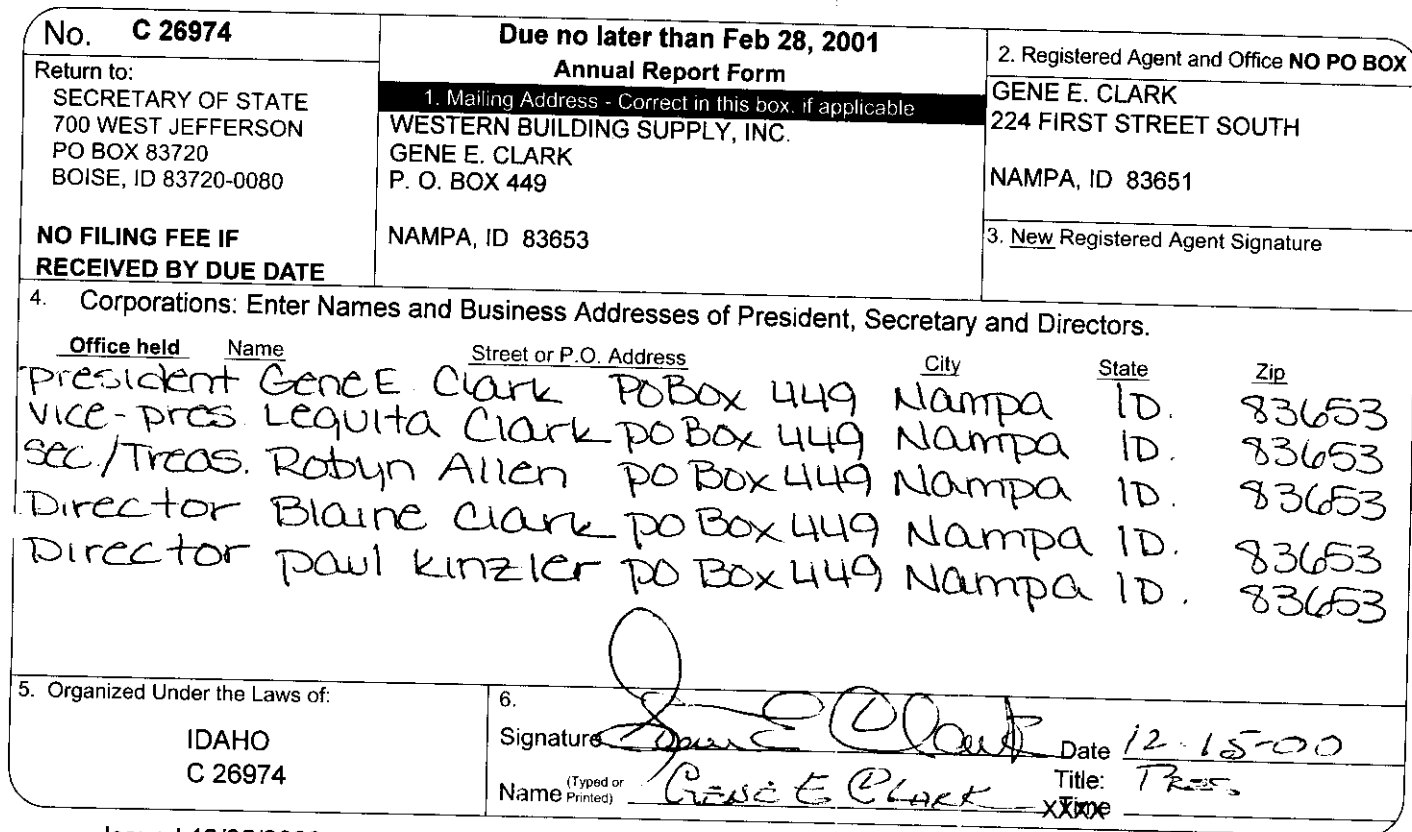 No. C 26974
Return to:
SECRETARY OF STATE
700 WEST JEFFERSON
PO BOX 83720
BOISE, ID 83720-0080
NO FILING FEE IF
RECEIVED BY DUE DATE
Due no later than Feb 28, 2001
Annual Report Form
1. Mailing Address - Correct in this box, if applicable
WESTERN BUILDING SUPPLY, INC.
GENE E. CLARK
P. O. BOX 449
NAMPA, ID 83653
2. Registered Agent and Office NO PO BOX
GENE E. CLARK
224 FIRST STREET SOUTH
NAMPA, ID 83651
3. New Registered Agent Signature
4. Corporations: Enter Names and Business Addresses of President, Secretary and Directors.
Office held Name Street or P.O. Address City State Zip
President Gene E. Clark PO Box 449 Nampa ID. 83653
Vice-pres. Lequita Clark PO Box 449 Nampa ID. 83653
Sec./Treas. Robyn Allen PO Box 449 Nampa ID. 83653
Director Blaine Clark PO Box 449 Nampa ID. 83653
Director Paul Kinzler PO Box 449 Nampa ID. 83653
5. Organized Under the Laws of:
IDAHO
C 26974
6.
Signature Gene E Clark Date 12-15-00
Name (Typed or Printed) GENE E CLARK Title: PRES.